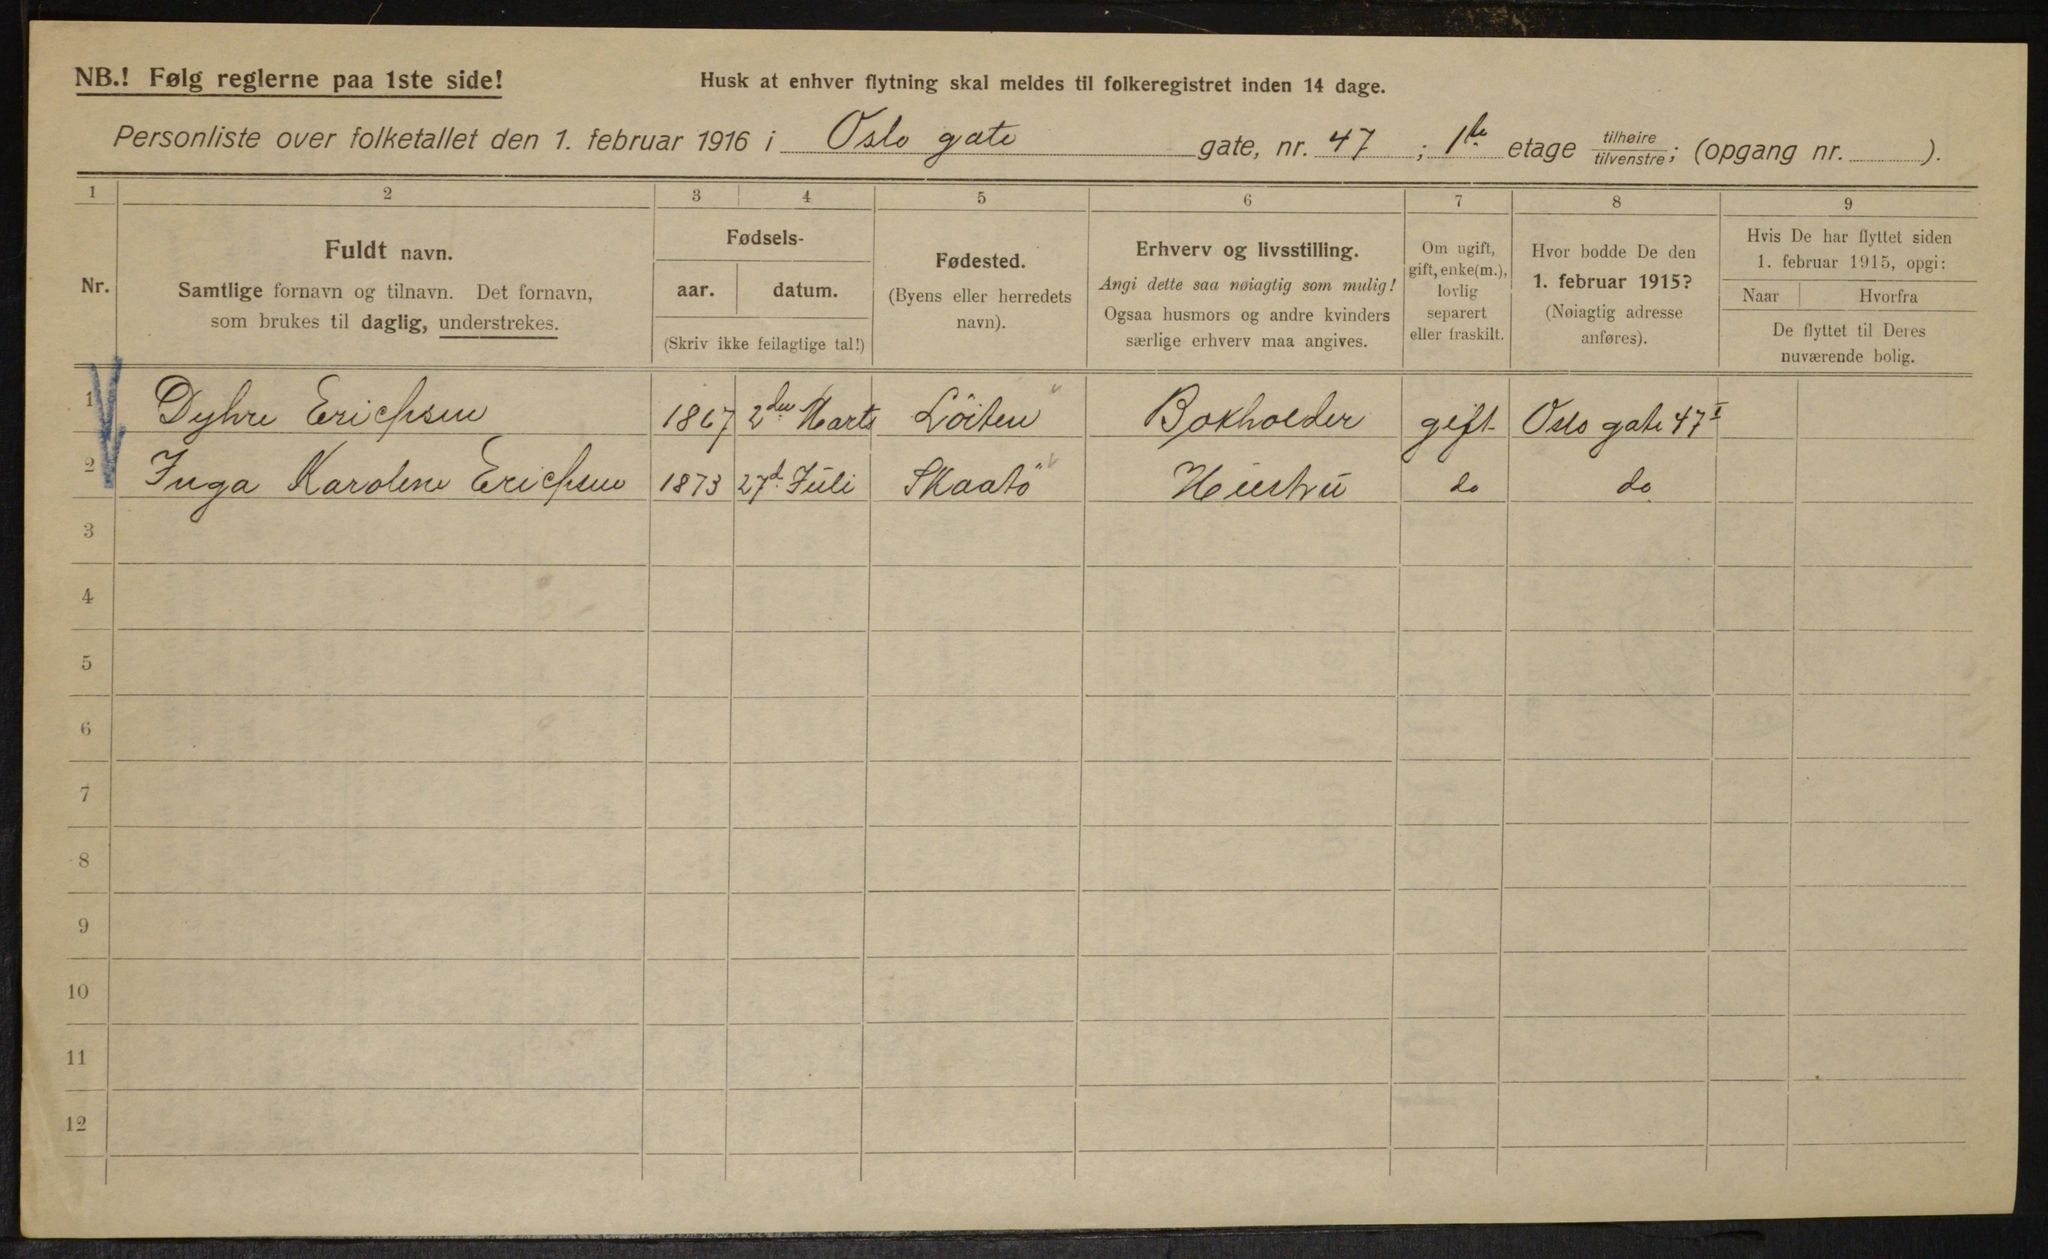 NB.! Følg reglerne paa 1ste side!
Husk at enhver flytning skal meldes til folkeregistret inden 14 dage.
Personliste over folketallet den 1. februar 1916 i Oslo gate gate, nr. 47 ; 1ste etage tilhøire / tilvenstre ; (opgang nr. ).
1 2 3 4 5 6 7 8 9
Nr.
Fuldt navn.
Samtlige fornavn og tilnavn. Det fornavn,
som brukes til daglig, understrekes.
Fødsels-
aar. datum.
(Skriv ikke feilagtige tal!)
Fødested.
(Byens eller herredets
navn).
Erhverv og livsstilling.
Angi dette saa nøiagtig som mulig!
Ogsaa husmors og andre kvinders
særlige erhverv maa angives.
Om ugift,
gift, enke(m.),
lovlig
separert
eller fraskilt.
Hvor bodde De den
1. februar 1915?
(Nøiagtig adresse
anføres).
Hvis De har flyttet siden
1. februar 1915, opgi:
Naar Hvorfra
De flyttet til Deres
nuværende bolig.
1 Dyhre Erichsen 1867 2den Marts Löiten Bokholder gift Oslo gate 47 I
2 Inga Karoline Erichsen 1873 27d. Juli Skaatö Hustru do do
3
4
5
6
7
8
9
10
11
12